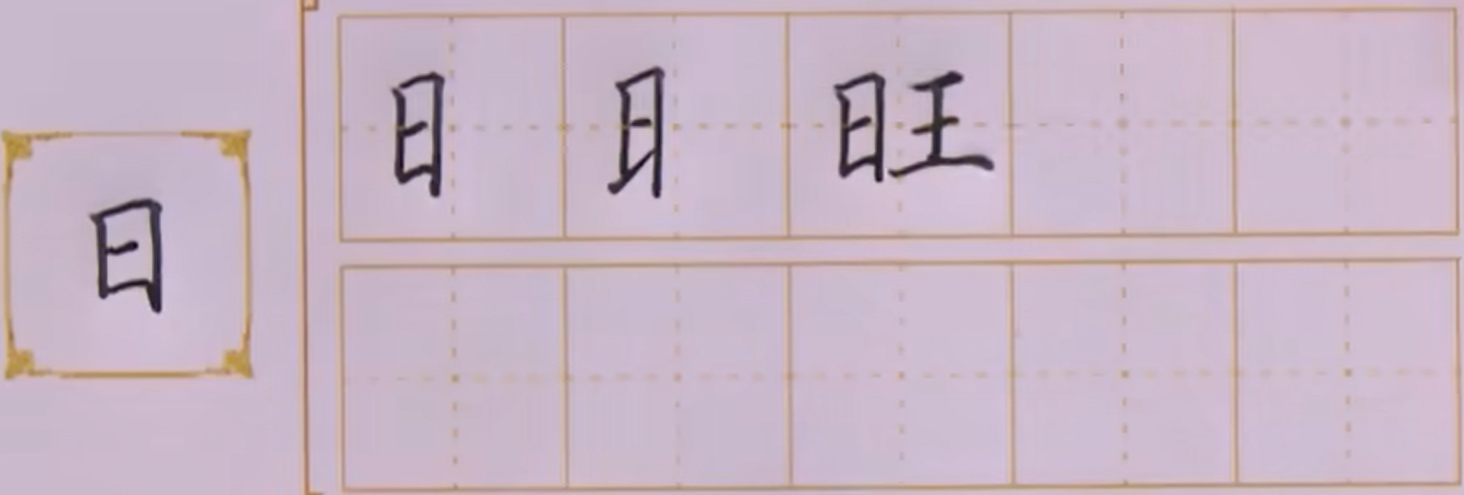 日
日 日 旺